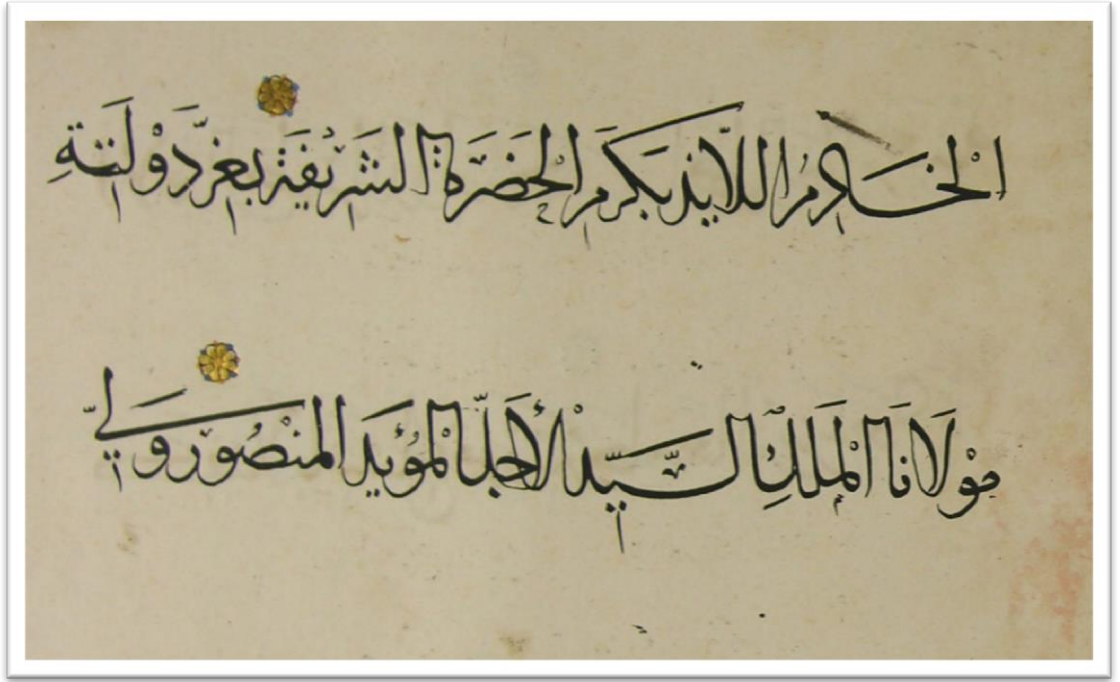 الْخَادِمُ اللَّائِذ بِكَرَمِ الْحَضْرَةِ الشَّرِيْفَةِ بِعِزِّ دَوْلَتِهِ
مَوْلَانَا الْمَلَكِ السَّيِّدْ الْأَجَلّ الْمُؤَيَد الْمَنْصُوْر وَلِيّ